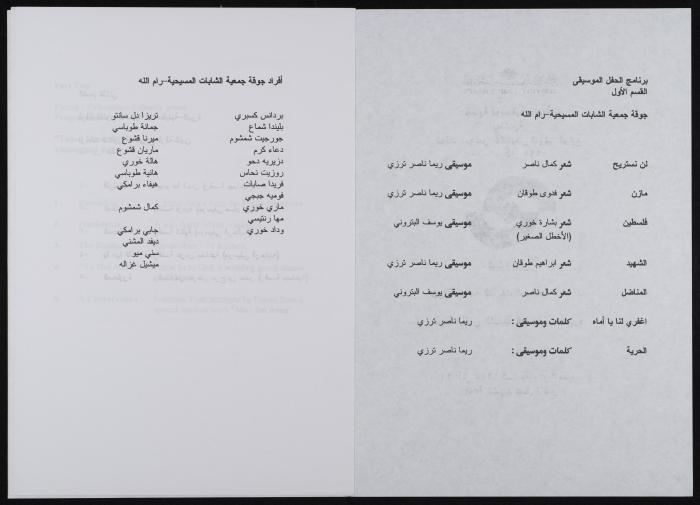 برنامج الحفل الموسيقى
القسم الأول
جوقة جمعية الشابات المسيحية-رام الله
لن نستريح شعر كمال ناصر موسيقى ريما ناصر ترزي
مازن شعر فدوى طوقان موسيقى ريما ناصر ترزي
فلسطين شعر بشارة خوري موسيقى يوسف البتروني
(الأخطل الصغير)
الشهيد شعر ابراهيم طوقان موسيقى ريما ناصر ترزي
المناضل شعر كمال ناصر موسيقى يوسف البتروني
اغفري لنا يا أماه كلمات وموسيقى : ريما ناصر ترزي
الحرية كلمات وموسيقى : ريما ناصر ترزي
أفراد جوقة جمعية الشابات المسيحية-رام الله
بردانس كسبري تريزا دل سانتو
بليندا شماع جمانة طوباسي
جورجيت شمشوم ميرنا قشوع
دعاء كرم ماريان قشوع
دزيريه دحو هالة خوري
روزيت نحاس هانية طوباسي
فريدا صابات هيفاء برامكي
فوميه ججي
ماري خوري كمال شمشوم
مها رنتيسي
وداد خوري جابي برامكي
ديفد المشني
سني ميو
ميشيل غزاله